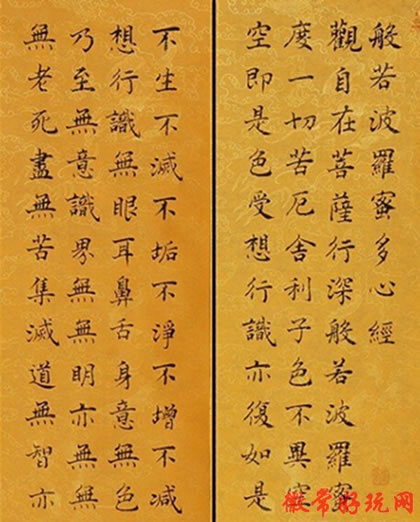 般若波羅蜜多心經
觀自在菩薩行深般若波羅蜜
度一切苦厄舍利子色不異空
空即是色受想行識亦復如是
不生不滅不垢不淨不增不減
想行識無眼耳鼻舌身意無色
乃至無意識界無無明亦無無
無老死盡無苦集滅道無智亦
徽常好玩网